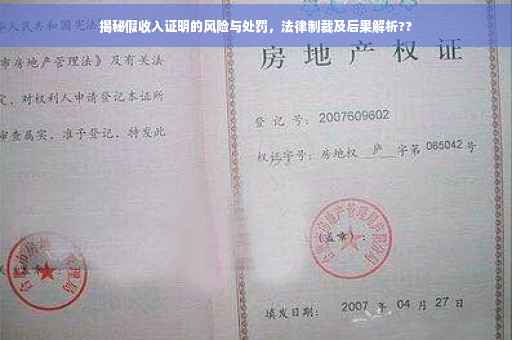 揭秘假收入证明的风险与处罚，法律制裁及后果解析??
人民共和国宪法
市房地产管理法》及有关法
定，对权利人申请登记本证所
审查属实，准予登记，特发此
房地产
登记号：2007609602
权证字号：房地权庐字第065042号
(盖章)：
填发日期：2007年04月27日